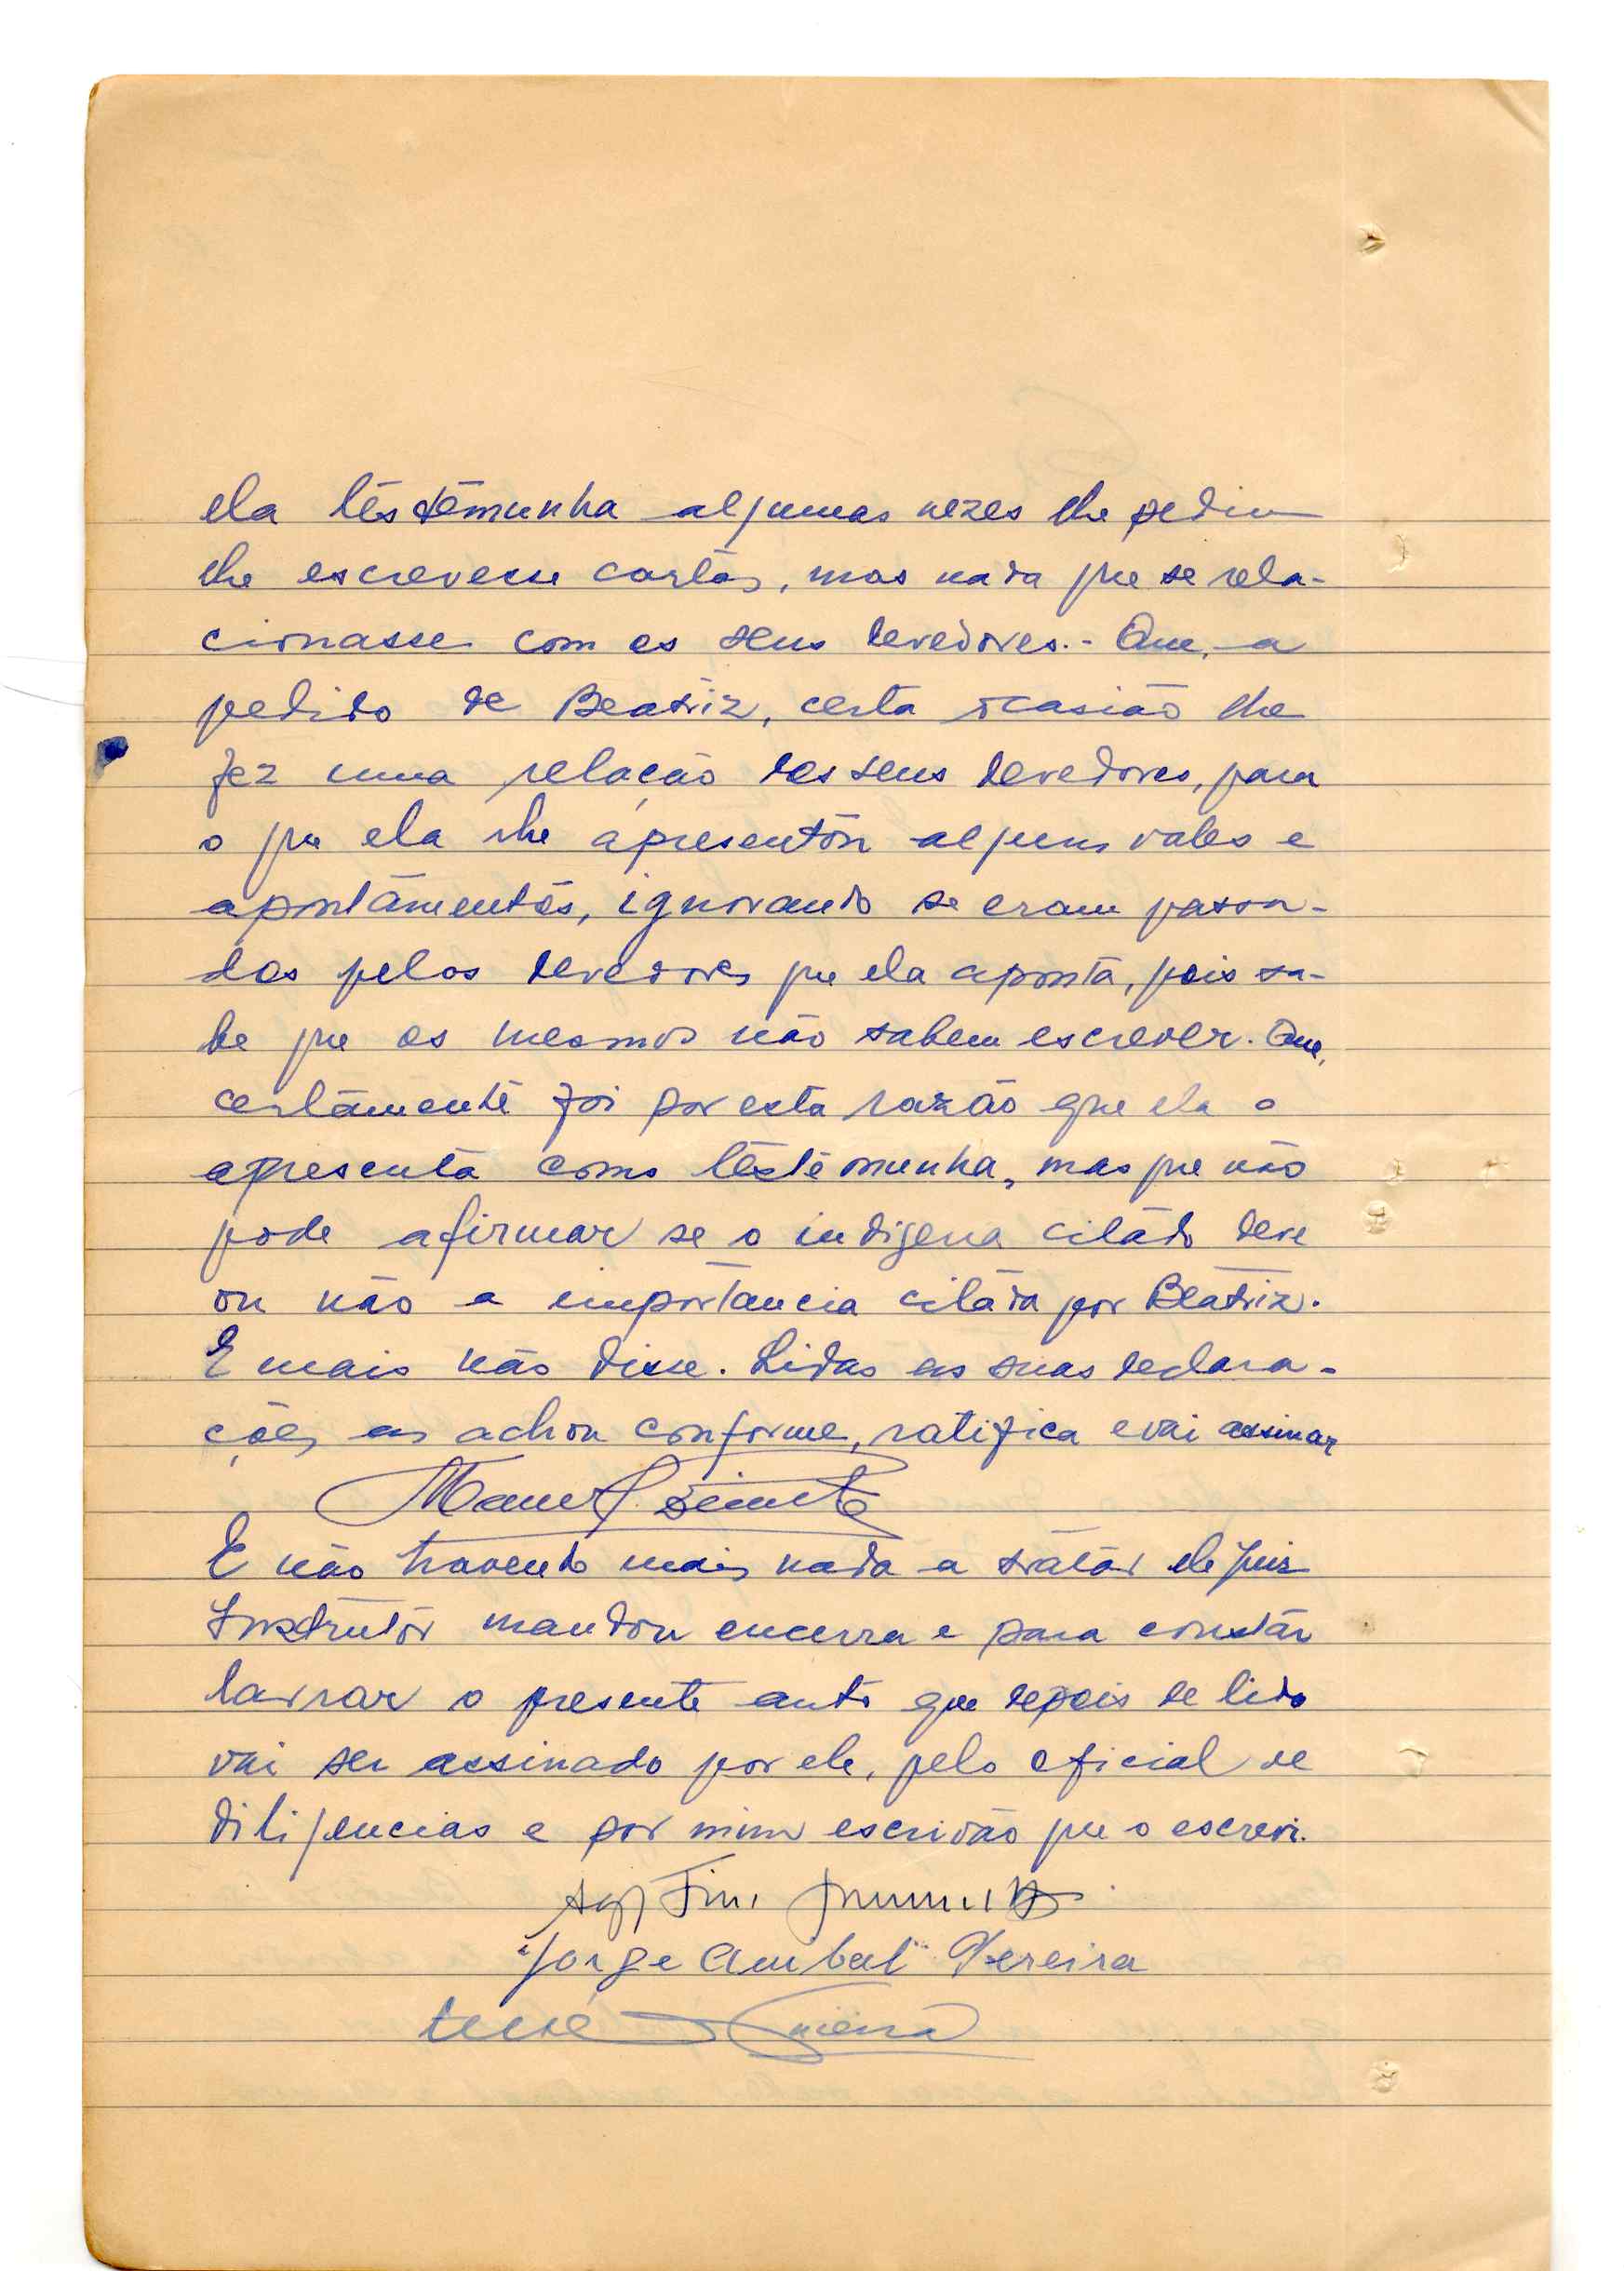 ela testemunha algumas vezes lhe pediu
lhe escrevesse cartas, mas nada que se rela-
cionasse com os seus devedores.- Que, a
pedido de Beatriz, certa ocasião lhe
fez uma relação dos seus devedores, para
o que ela lhe apresentou alguns vales e
apontamentos, ignorando se eram passa-
dos pelos devedores que ela aponta, pois sa-
be que os mesmos não sabem escrever. Que,
certamente foi por esta razão que ela o
apresenta como testemunha, mas que não
pode afirmar se o indigena citado deve
ou não a importancia citada por Beatriz.
E mais não disse. Lidas as suas declara-
ções as achou conforme, ratifica e vai assinar
Manuel
E não havendo mais nada a tratar ele Juiz
Instrutor mandou encerra e para constar
lavrar o presente auto que depois de lido
vai ser assinado por ele, pelo oficial de
diligencias e por mim escrivão que o escrevi.
Jorge Pereira